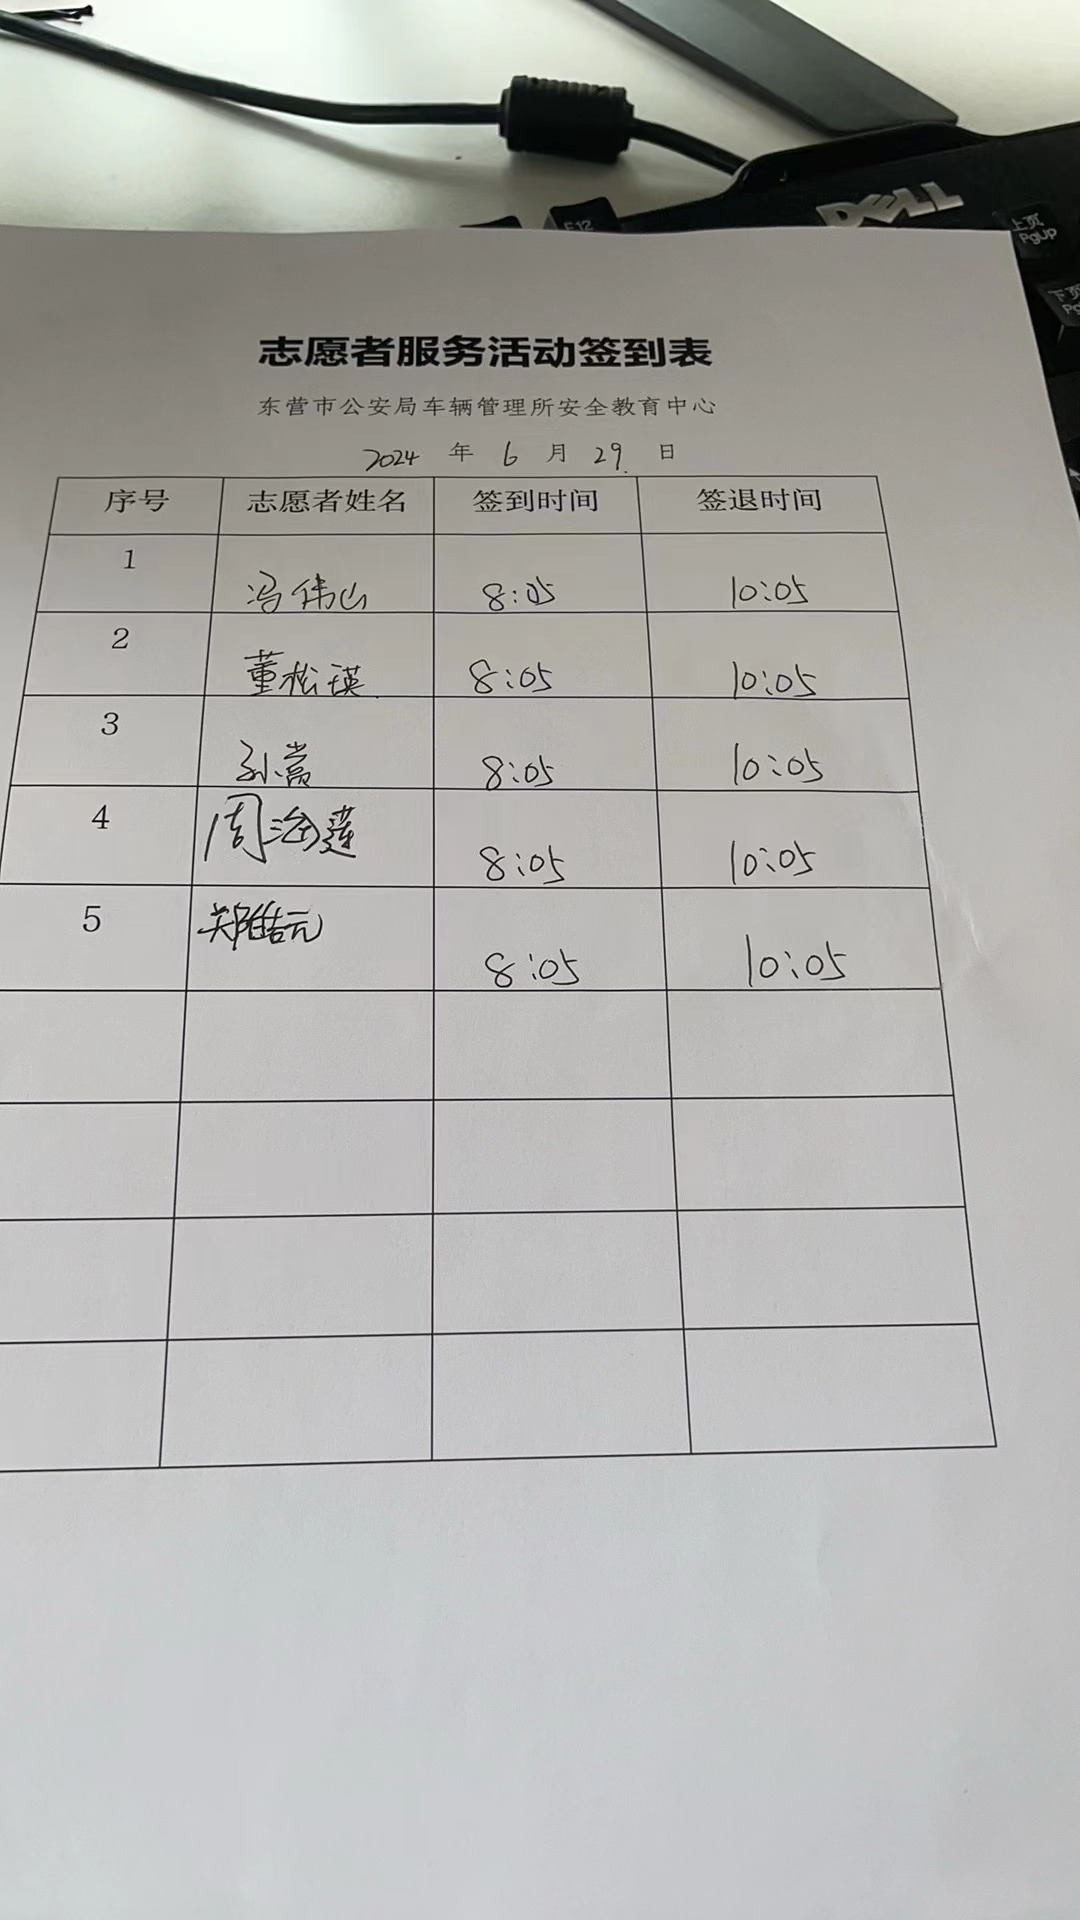 DELL
F12
上页
PgUp
下页
志愿者服务活动签到表
东营市公安局车辆管理所安全教育中心
2024 年 6 月 29 日
序号 志愿者姓名 签到时间 签退时间
1 冯伟山 8:05 10:05
2 董松瑛 8:05 10:05
3 孙嵩 8:05 10:05
4 周海莲 8:05 10:05
5 郑 元 8:05 10:05